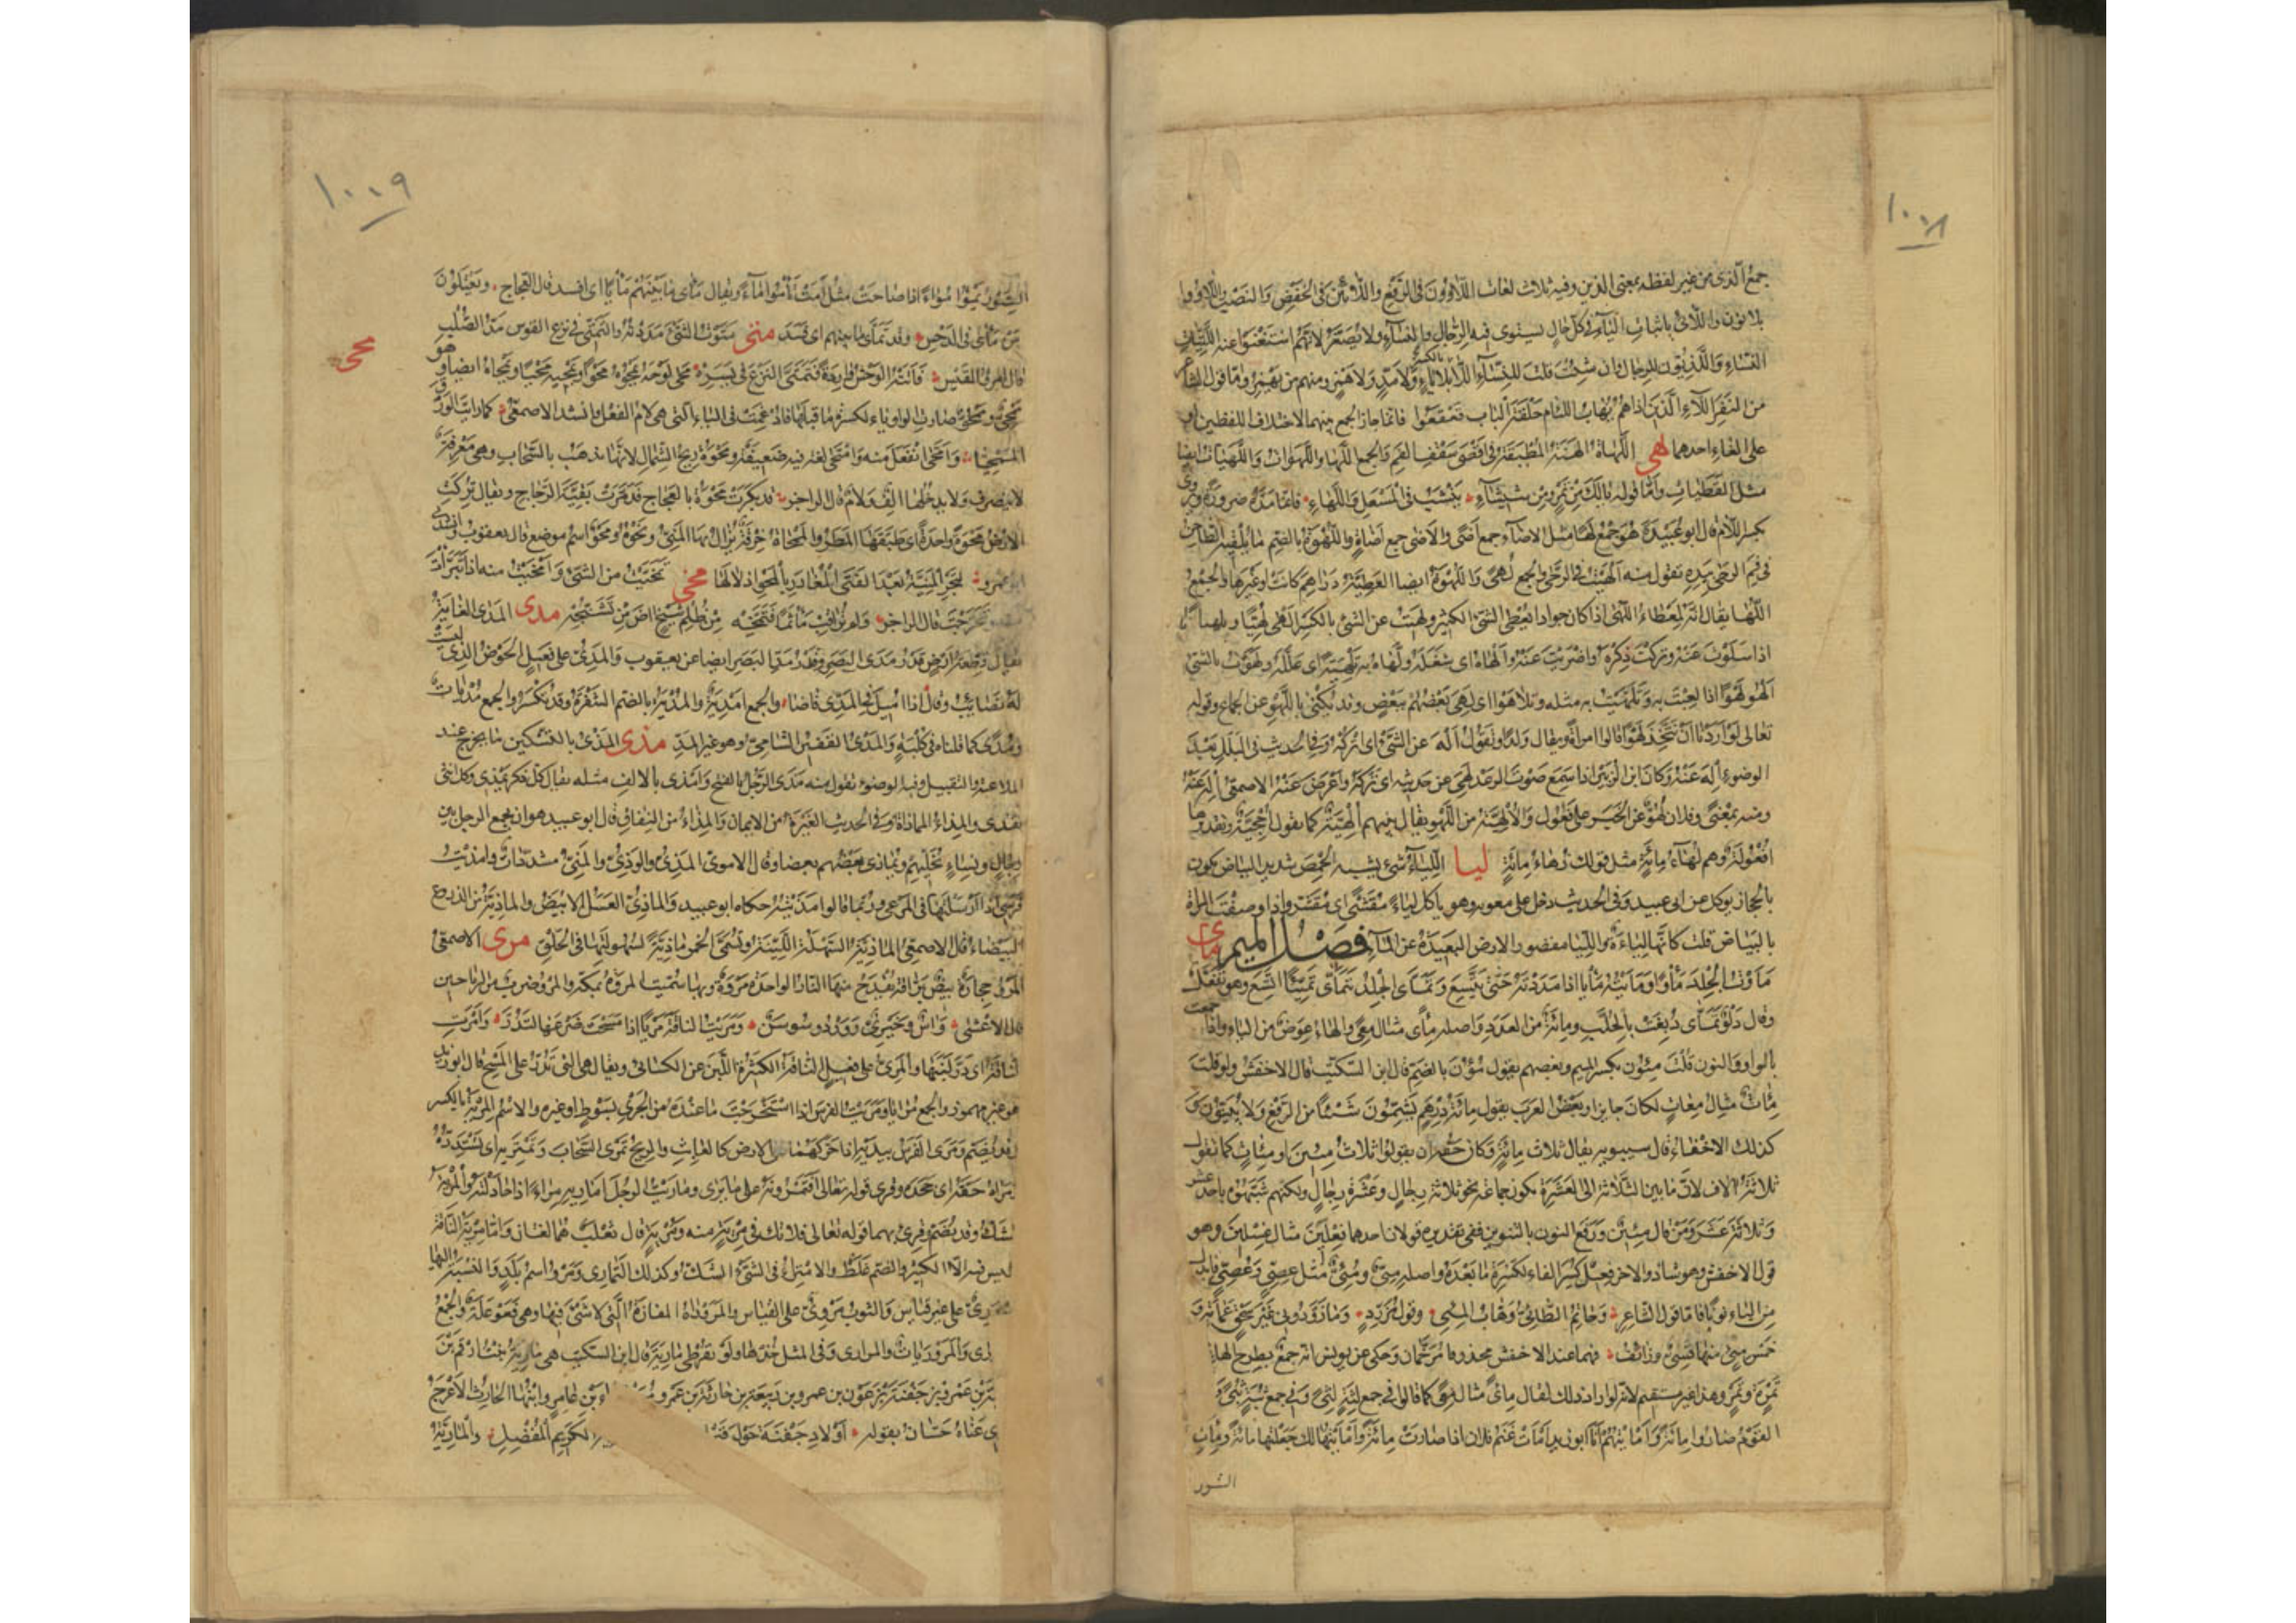 ١٠١٨
جمع الذى من غير لفظه بمعنى الذين وفيه ثلاث لغات اللاؤون فى الرفع واللائين فى الخفض والنصب واللاؤوا
بلا نون واللائى باثبات الياء فى كل حال يستوى فيه الرجال والنساء ولا يصغر لانهم استغنوا عنه باللتيات
للنساء واللذيون للرجال وان شئت قلت للنساء اللا بالكسر بلا ياء ولا مد ولا همز ومنهم من يهمز واما قول الشاعر
من النفر اللاء الذين اذا هم يهاب اللئام حلقة الباب قعقعوا فانما جاز الجمع بينهما لاختلاف اللفظين او
على الغاء احدهما لهى اللهاة الهنة المطبقة فى اقصى سقف الفم والجمع اللها واللهوات واللهيات ايضا
مثل القطيات واما قوله يالك من تمر ومن شيشاء ينشب فى المسعل واللهاء فانما مده ضرورة ويروى
بكسر اللام قال ابو عبيدة هو جمع لها مثل الاضاء جمع اضى والاضى جمع اضاة واللهوة بالضم ما يلقيه الطاحن
فى فم الرحى بيده تقول منه الهيت فى الرحى والجمع لهى واللهوة ايضا العطية دراهم كانت او غيرها والجمع
اللها يقال انه لمعطاء اللهى اذا كان جوادا يعطى الشئ الكثير ولهيت عن الشئ بالكسر الهى لهيا ولهيانا
اذا سلوت عنه وتركت ذكره واضربت عنه والهاه اى شغله ولهاه به تلهية اى علله ولهوت بالشئ
الهو لهوا اذا لعبت به وتلهيت به مثله وتلاهوا اى لهى بعضهم ببعض وقد يكنى باللهو عن الجماع وقوله
تعالى لو اردنا ان نتخذ لهوا قالوا امراة ويقال ولدا وتقول اله عن الشئ اى اتركه وفى الحديث فى البلل بعد
الوضوء اله عنه وكان ابن الزبير اذا سمع صوت الرعد لهى عن حديثه اى تركه واعرض عنه الاصمعى اله عنه
ومنه بمعنى وفلان لهو عن الخير على فعول والالهية من اللهو يقال بينهم الهية كما تقول احجية وتقديرها
افعولة وهم لهاء مائة مثل قولك زهاء مائة ليا اللياء شئ يشبه الحمص شديد البياض يكون
بالحجاز يوكل عن ابى عبيد وفى الحديث دخل على معوية وهو ياكل لياء مقشى اى مقشر واذا وصفت المراة
بالبياض قلت كانها لياءة والليا مقصور الارض البعيدة عن الماء فصل الميم ماى
مأوت الجلد مأوا ومأيته مأيا اذا مددته حتى يتسع وتمأى الجلد يتمأى تمئيا اتسع وهو تفعل
وقال دلو تمأى دبغت بالحلب ومائة من العدد واصله مأى مثال معى والهاء عوض من الياء واذا جمعت
بالواو والنون قلت مئون بكسر الميم وبعضهم يقول مؤن بالضم قال ابن السكيت قال الاخفش ولو قلت
مئات مثال معات لكان جايزا وبعض العرب يقول مائة درهم يشمون شئا من الرفع ولا يبينون و
كذلك الاخفاء قال سيبويه يقال ثلاث مائة وكان حقه ان يقولوا ثلاث مئين او مئات كما تقول
ثلاثة الاف لان ما بين الثلاثة الى العشرة يكون جماعة نحو ثلاثة رجال وعشرة رجال ولكنهم شبهوه باحد عشر
وثلاثة عشر ومن قال مئين ورفع النون بالتنوين ففى تقديره قولان احدهما فعلين مثال غسلين وهو
قول الاخفش وهو شاذ والاخر فعيل كسر الفاء لكسرة ما بعده واصله مئى ومئى مثل عصى وعصى فابدل
من الياء نونا فاما قول الشاعر وحاتم الطائى وهاب المئى وقول مزرد وما زودونى غير سحق عمامة و
خمس مئى منها قسى وزائف فهما عند الاخفش محذوفان مرخمان وحكى عن يونس انه جمع بطرح الهاء
تمرة وتمر وهذا غير مستقيم لانه لو اراد ذلك لقال مأى مثال معى كما قالوا فى جمع لثة لثى وفى جمع ثبة ثبى و
القوم صاروا مائة وامأيتهم انا ابو زيد امأت غنم فلان اذا صارت مائة وامأيتها لك جعلتها مائة ومأيت
السنور
١٠١٩
السنور تموء مواء اذا صاحت مثل امت تأمو اماء ويقال مأى ما بينهم مأيا اى افسد قال العجاج ويعتلون
من مأى فى الدحس وقد تمأى ما بينهم اى فسد متى متوت الشئ مددته والتمتى فى نزع القوس مد الصلب
قال امرؤ القيس فاتته الوحش واردة فتمتى النزع فى يسره محى لوحه يمحوه محوا ويمحيه محيا ويمحاه ايضا وهو
محى
ممحو وممحى صارت الواو ياء لكسرة ما قبلها فادغمت فى الياء التى هى لام الفعل وانشد الاصمعى كما رايت الورق
الممحيا وامحى انفعل منه وامتحى لغة فيه ضعيفة ومحوة ريح الشمال لانها تذهب بالسحاب وهى معرفة
لا ينصرف ولا يدخلها الف ولام قال الراجز قد بكرت محوة بالعجاج فدمرت بقية الرجاج ويقال تركت
الارض محوة واحدة اى طبقها المطر والممحاة خرقة يزال بها المنى ونحوه ومحو اسم موضع قال يعقوب وانشدنى
ابو عمرو لتجر المنية بعد الفتى المغادر بالمحو اذلالها مخى تمخيت من الشئ وامخيت منه اذا تبرأت
منه وتحرجت قال الراجز ولم تراقب مأثما فتمخه من ظلم شيخ اض من تشيخه مدى المدى الغاية
يقال قطعة ارض قدر مدى البصر وقدر مد البصر ايضا عن يعقوب والمدى على فعيل الحوض الذى ليست
له نصائب وقال اذا اميل فى المدى فاضا والجمع امدية والمدية بالضم الشفرة وقد تكسر والجمع مديات
ومدى كما قلناه فى كلية والمدى القفيز الشامى وهو غير المد مذى المذى بالتسكين ما يخرج عند
الملاعبة والتقبيل وفيه الوضوء تقول منه مذى الرجل بالفتح وامذى بالالف مثله يقال كل ذكر يمذى وكل انثى
تقذى والمذاء المماذاة وفى الحديث الغيرة من الايمان والمذاء من النفاق قال ابو عبيد هو ان يجمع الرجل بين
رجال ونساء يخليهم يماذى بعضهم بعضا وقال الاموى المذى والودى والمنى مشددات وامذيت
فرسى اذا ارسلتها فى المرعى وربما قالوا مذيته حكاه ابو عبيد والماذى العسل الابيض والماذية من الدروع
البيضاء قال الاصمعى الماذية السهلة اللينة وتسمى الخمر ماذية لسهولتها فى الحلق مرى الاصمعى
المرو حجارة بيض براقة تقدح منها النار الواحدة مروة وبها سميت المروة بمكة والمرو ضرب من الرياحين
قال الاعشى واس وخيرى ومرو وسوسن ومريت الناقة مريا اذا مسحت ضرعها لتدر وامرت
الناقة اى در لبنها والمرى على فعيل الناقة الكثيرة اللبن عن الكسائى ويقال هى التى تدر على المسح قال ابو زيد
هو غير مهموز والجمع مرايا ومريت الفرس اذا استخرجت ما عنده من الجرى بسوط او غيره والاسم المرية بالكسر
وقد يضم ومرى الفرس بيديه اذا حركهما على الارض كالعابث والريح تمرى السحاب وتمتريه اى تستدره
ومراه حقه اى جحده وقرئ قوله تعالى افتمرونه على ما يرى وماريت الرجل اماريه مراء اذا جادلته والمرية
الشك وقد يضم وقرئ بهما قوله تعالى فلا تك فى مرية منه ومرية قال ثعلب هما لغتان واما مرية الناقة
ليس فيه الا الكسر والضم غلط والامتراء فى الشئ الشك وكذلك التمارى ومرو اسم بلد والنسبة اليها
مروزى على غير قياس والثوب مروى على القياس والمروراة المفازة التى لا شئ فيها وهى فعوعلة والجمع
المرورى والمروريات والمرارى وفى المثل خذها ولو بقرطى مارية قال ابن السكيت هى مارية بنت ارقم بن
ثعلبة بن عمرو بن جفنة بن عوف بن عمرو بن ربيعة بن حارثة بن عمرو بن عامر وابنها الحارث الاعرج
الذى عناه حسان بقوله اولاد جفنة حول قبر الكريم المفضل والمارية